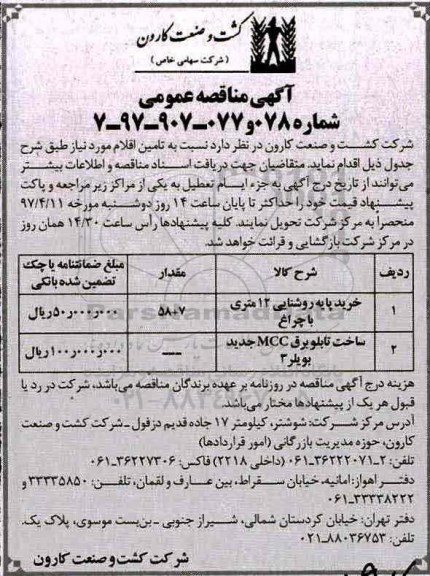 کشت و صنعت کارون
(شرکت سهامی خاص)
آگهی مناقصه عمومی
شماره ۰۷۸و۰۷۷-۹۰۷-۹۷-۷
شرکت کشت و صنعت کارون در نظر دارد نسبت به تامین اقلام مورد نیاز طبق شرح
جدول ذیل اقدام نماید. متقاضیان جهت دریافت اسناد مناقصه و اطلاعات بیشتر
می‌توانند از تاریخ درج آگهی به جزء ایام تعطیل به یکی از مراکز زیر مراجعه و پاکت
پیشنهاد قیمت خود را حداکثر تا پایان ساعت ۱۴ روز دوشنبه مورخه ۹۷/۴/۱۱
منحصراً به مرکز شرکت تحویل نمایند. کلیه پیشنهادها رأس ساعت ۱۴/۳۰ همان روز
در مرکز شرکت بازگشایی و قرائت خواهد شد.
ردیف شرح کالا مقدار مبلغ ضمانتنامه یا چک تضمین شده بانکی
۱ خرید پایه روشنایی ۱۲ متری با چراغ ۵۸+۷ ۵۰٫۰۰۰٫۰۰۰ ریال
۲ ساخت تابلو برق MCC جدید بویلر ۳ --- ۱۰۰٫۰۰۰٫۰۰۰ ریال
هزینه درج آگهی مناقصه در روزنامه بر عهده برندگان مناقصه می‌باشد، شرکت در رد یا
قبول هر یک از پیشنهادها مختار می‌باشد.
آدرس مرکز شرکت: شوشتر، کیلومتر ۱۷ جاده قدیم دزفول -شرکت کشت و صنعت
کارون، حوزه مدیریت بازرگانی (امور قراردادها)
تلفن: ۲-۳۶۲۲۲۰۷۱-۰۶۱ (داخلی ۲۲۱۸) فاکس: ۳۶۲۲۷۳۰۶-۰۶۱
دفتر اهواز: امانیه، خیابان سقراط، بین عارف و لقمان، تلفن: ۳۳۳۳۵۸۵۰ و
۳۳۳۳۸۲۲۲-۰۶۱
دفتر تهران: خیابان کردستان شمالی، شیراز جنوبی -بن‌بست موسوی، پلاک یک.
تلفن: ۸۸۰۳۶۷۵۳-۰۲۱
شرکت کشت و صنعت کارون